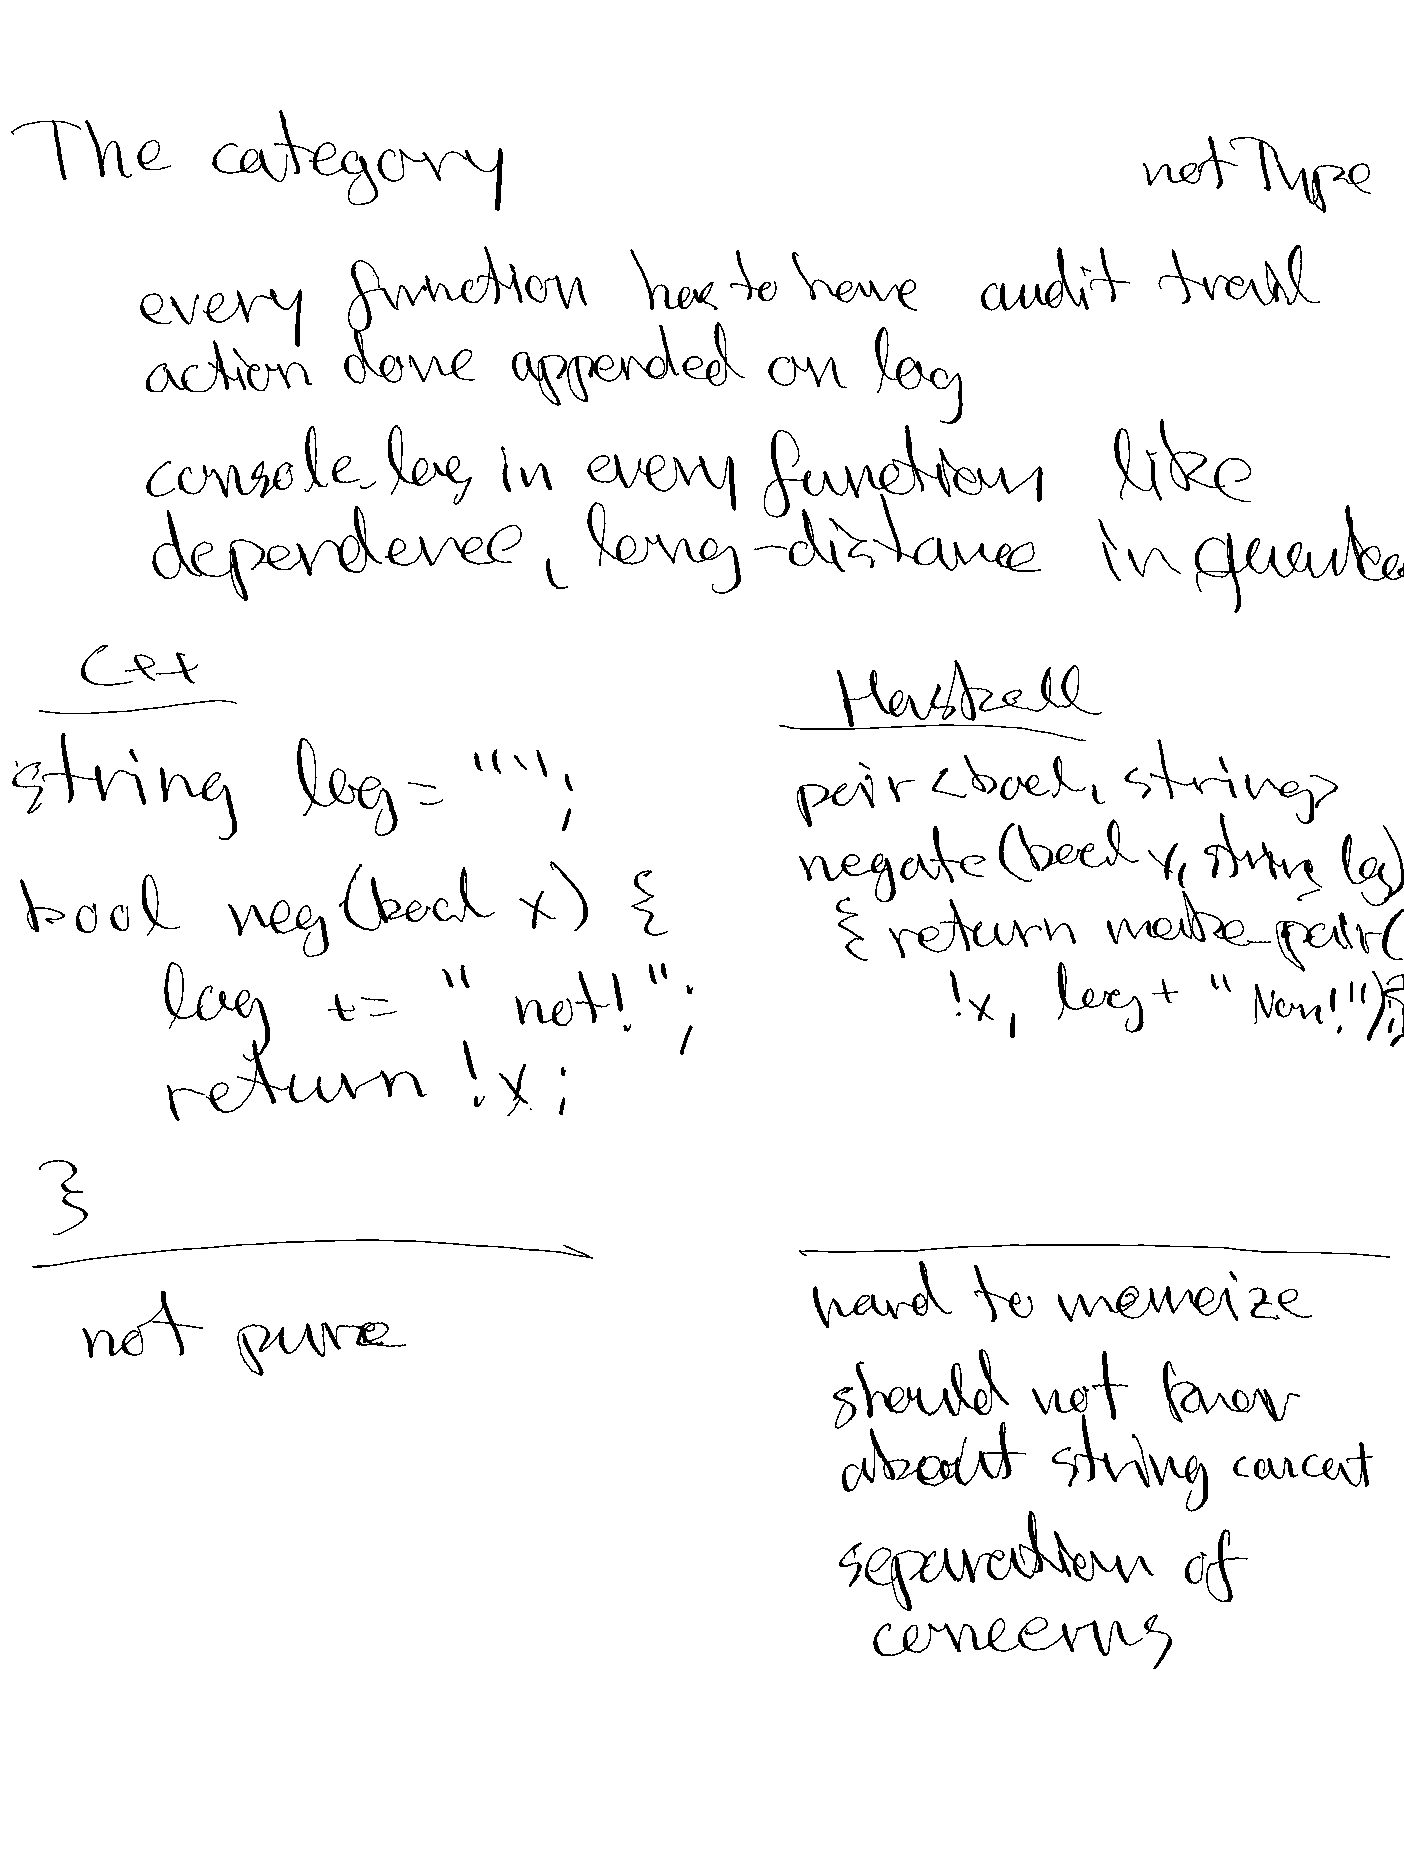 The category
not Type
every function has to have audit trail
action done appended on log
console.log in every function like
dependence, long-distance in
C++
string log = "";
bool neg(bool x) {
log += "not!";
return !x;
}
not pure
Haskell
pair<bool, string>
negate(bool x, string log)
{ return make_pair(
!x, log + "Non!");}
hard to memoize
should not know
about string concat
separation of
concerns